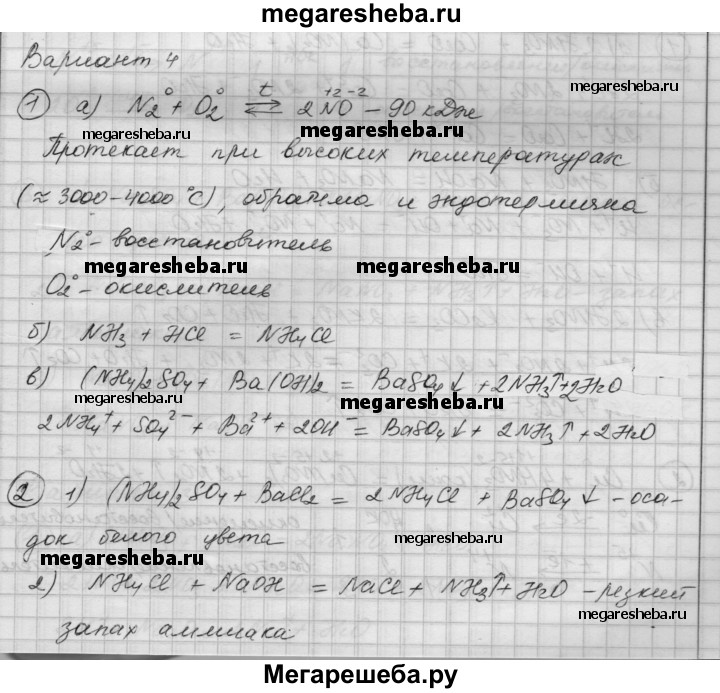 megaresheba.ru
Вариант 4
megaresheba.ru
① а) N₂⁰ + O₂⁰ ⇄ᵗ 2N⁺²O⁻² – 90 кДж
megaresheba.ru
megaresheba.ru
Протекает при высоких температурах
(≈ 3000-4000 °C), обратима и эндотермична
N₂⁰ - восстановитель
megaresheba.ru megaresheba.ru
O₂⁰ - окислитель
б) NH₃ + HCl = NH₄Cl
megaresheba.ru
в) (NH₄)₂SO₄ + Ba(OH)₂ = BaSO₄↓ + 2NH₃↑+2H₂O
megaresheba.ru
2NH₄⁺ + SO₄²⁻ + Ba²⁺ + 2OH⁻ = BaSO₄↓ + 2NH₃↑ + 2H₂O
megaresheba.ru
② 1) (NH₄)₂SO₄ + BaCl₂ = 2NH₄Cl + BaSO₄↓ - оса-
док белого цвета
megaresheba.ru
megaresheba.ru
2) NH₄Cl + NaOH = NaCl + NH₃↑+ H₂O - резкий
megaresheba.ru
запах аммиака
Мегарешеба.ру